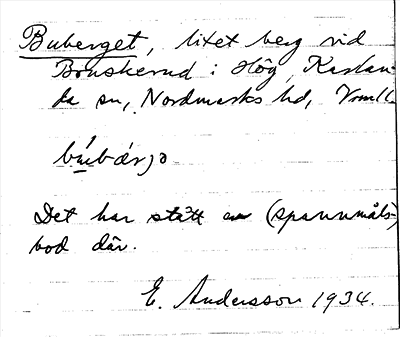 Buberget, litet berg vid
Bonskerud i Hög, Karlan-
da sn, Nordmarks hd, Vrml.
Det har stått en (spannmåls-)
bod där.
E. Andersson 1934.